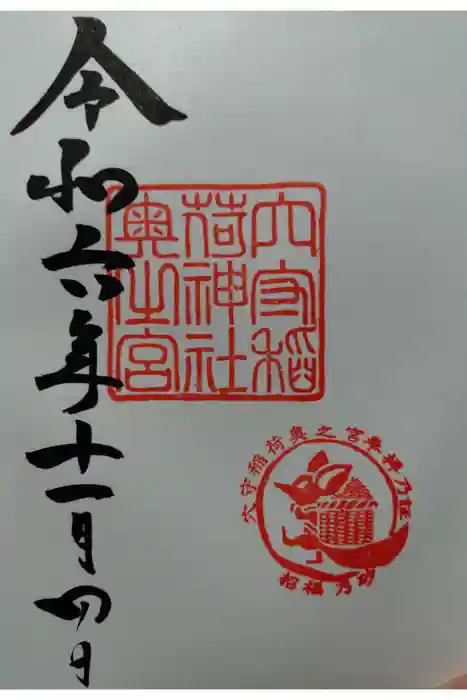 令和六年十一月四日
穴守稲
荷神社
奥之宮
穴守稲荷奥之宮奉拝乃証
招福乃砂